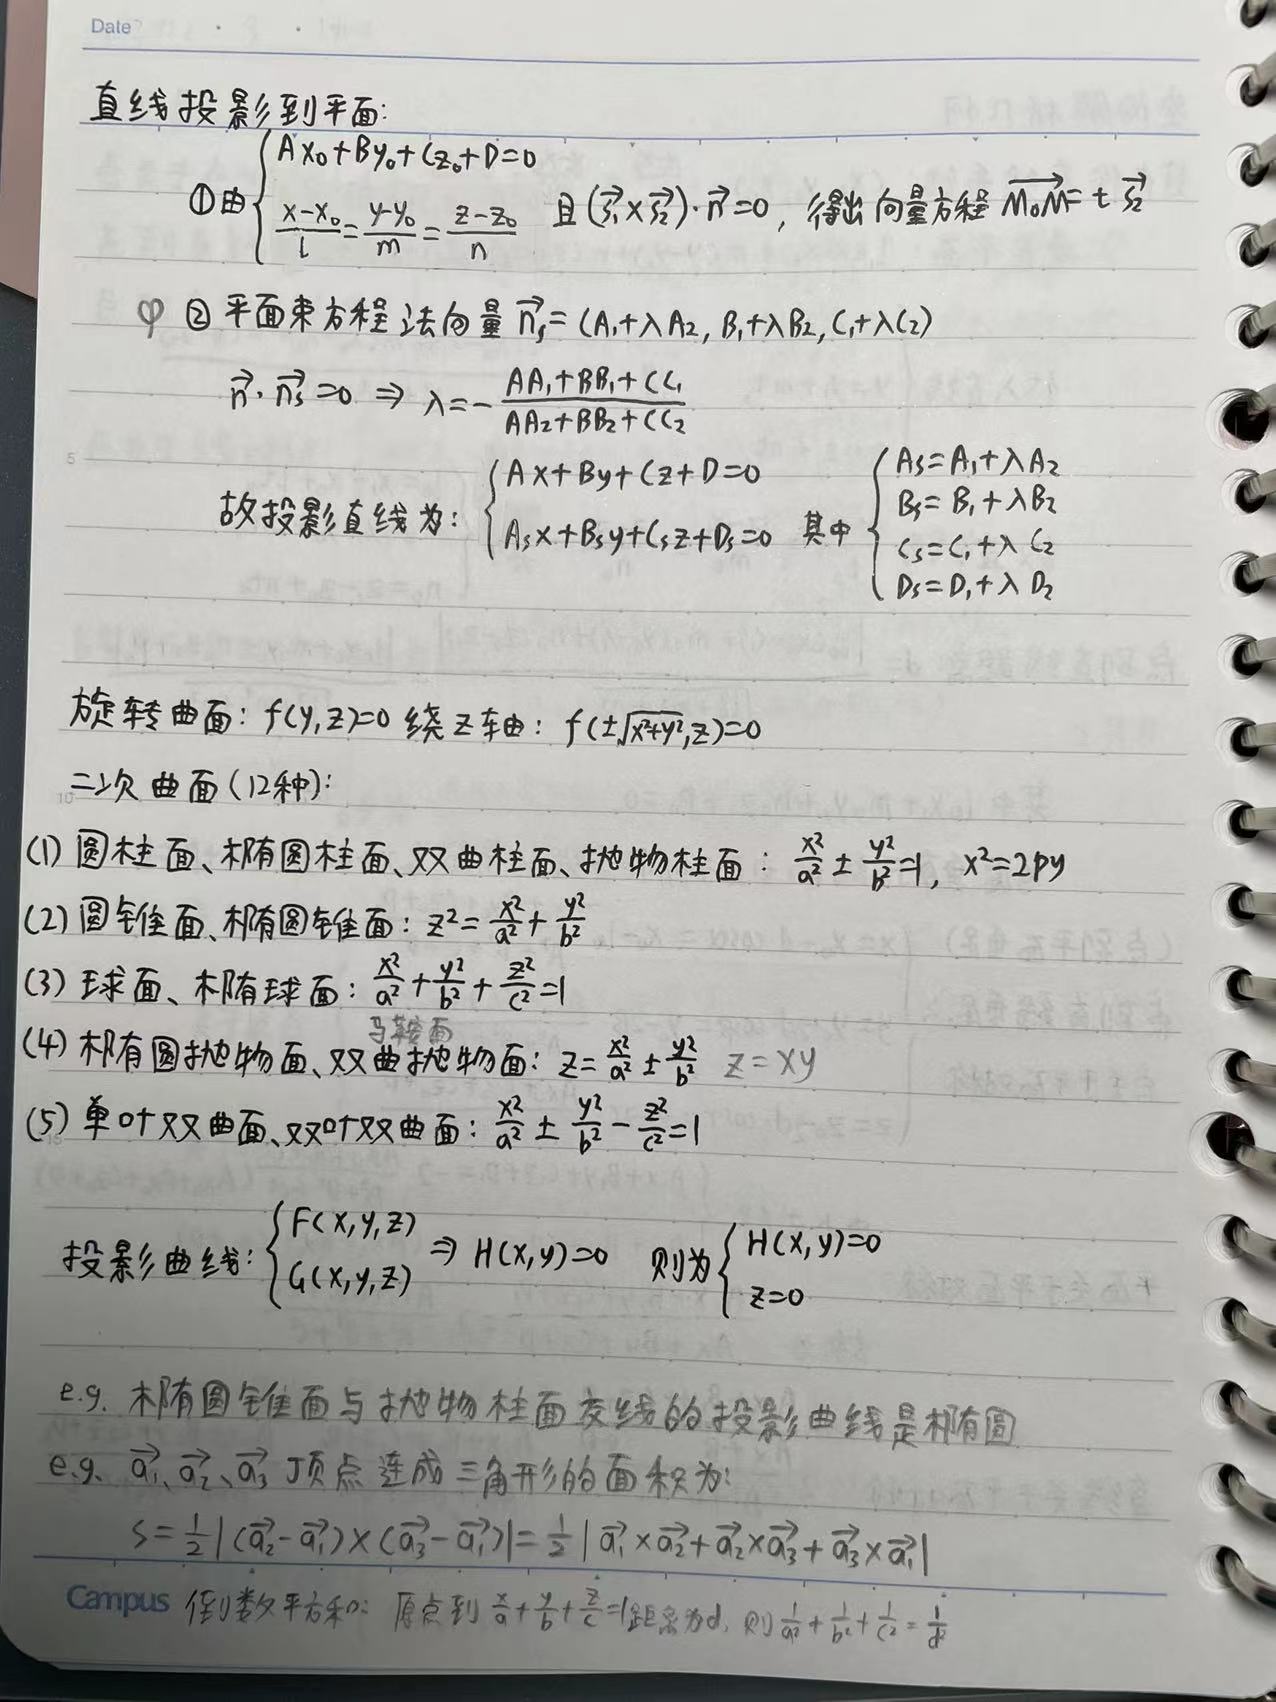 Date
直线投影到平面:
①由 { Ax₀+By₀+Cz₀+D=0
(x-x₀)/l = (y-y₀)/m = (z-z₀)/n 且(s₁⃗×s₂⃗)·n⃗=0, 得出向量方程 M₀M⃗=t s₂⃗
φ ②平面束方程法向量 n⃗s=(A₁+λA₂, B₁+λB₂, C₁+λC₂)
n⃗·n⃗s=0 ⇒ λ=-(AA₁+BB₁+CC₁)/(AA₂+BB₂+CC₂)
5
故投影直线为: { Ax+By+Cz+D=0
Asx+Bsy+Csz+Ds=0 其中 { As=A₁+λA₂
Bs=B₁+λB₂
Cs=C₁+λC₂
Ds=D₁+λD₂
旋转曲面: f(y,z)=0 绕z轴: f(±√(x²+y²),z)=0
10
二次曲面(12种):
(1) 圆柱面、椭圆柱面、双曲柱面、抛物柱面: x²/a² ± y²/b²=1, x²=2py
(2) 圆锥面、椭圆锥面: z²=x²/a²+y²/b²
(3) 球面、椭球面: x²/a²+y²/b²+z²/c²=1
马鞍面
(4) 椭圆抛物面、双曲抛物面: z=x²/a² ± y²/b² z=xy
(5) 单叶双曲面、双叶双曲面: x²/a² ± y²/b² - z²/c²=1
15
投影曲线: { F(x,y,z)
G(x,y,z) ⇒ H(x,y)=0 则为 { H(x,y)=0
z=0
e.g. 椭圆锥面与抛物柱面交线的投影曲线是椭圆
e.g. a₁⃗、a₂⃗、a₃⃗ 顶点连成三角形的面积为:
S=1/2|(a₂⃗-a₁⃗)×(a₃⃗-a₁⃗)|=1/2|a₁⃗×a₂⃗+a₂⃗×a₃⃗+a₃⃗×a₁⃗|
Campus 倒数平方和: 原点到 x/a+y/b+z/c=1距离为d, 则1/a²+1/b²+1/c²=1/d²